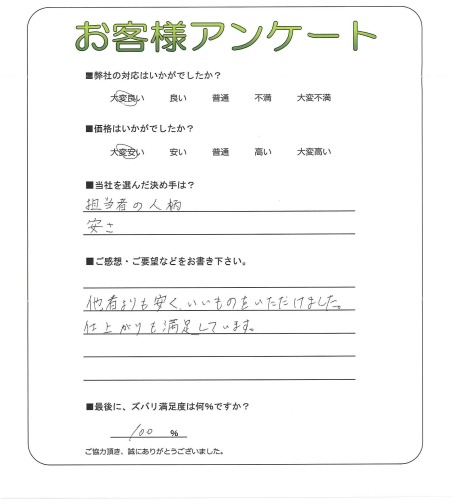 お客様アンケート
■弊社の対応はいかがでしたか？
大変良い 良い 普通 不満 大変不満
■価格はいかがでしたか？
大変安い 安い 普通 高い 大変高い
■当社を選んだ決め手は？
担当者の人柄
安さ
■ご感想・ご要望などをお書き下さい。
他者よりも安く、いいものをいただけました。
仕上がりも満足しています。
■最後に、ズバリ満足度は何%ですか？
100 %
ご協力頂き、誠にありがとうございました。